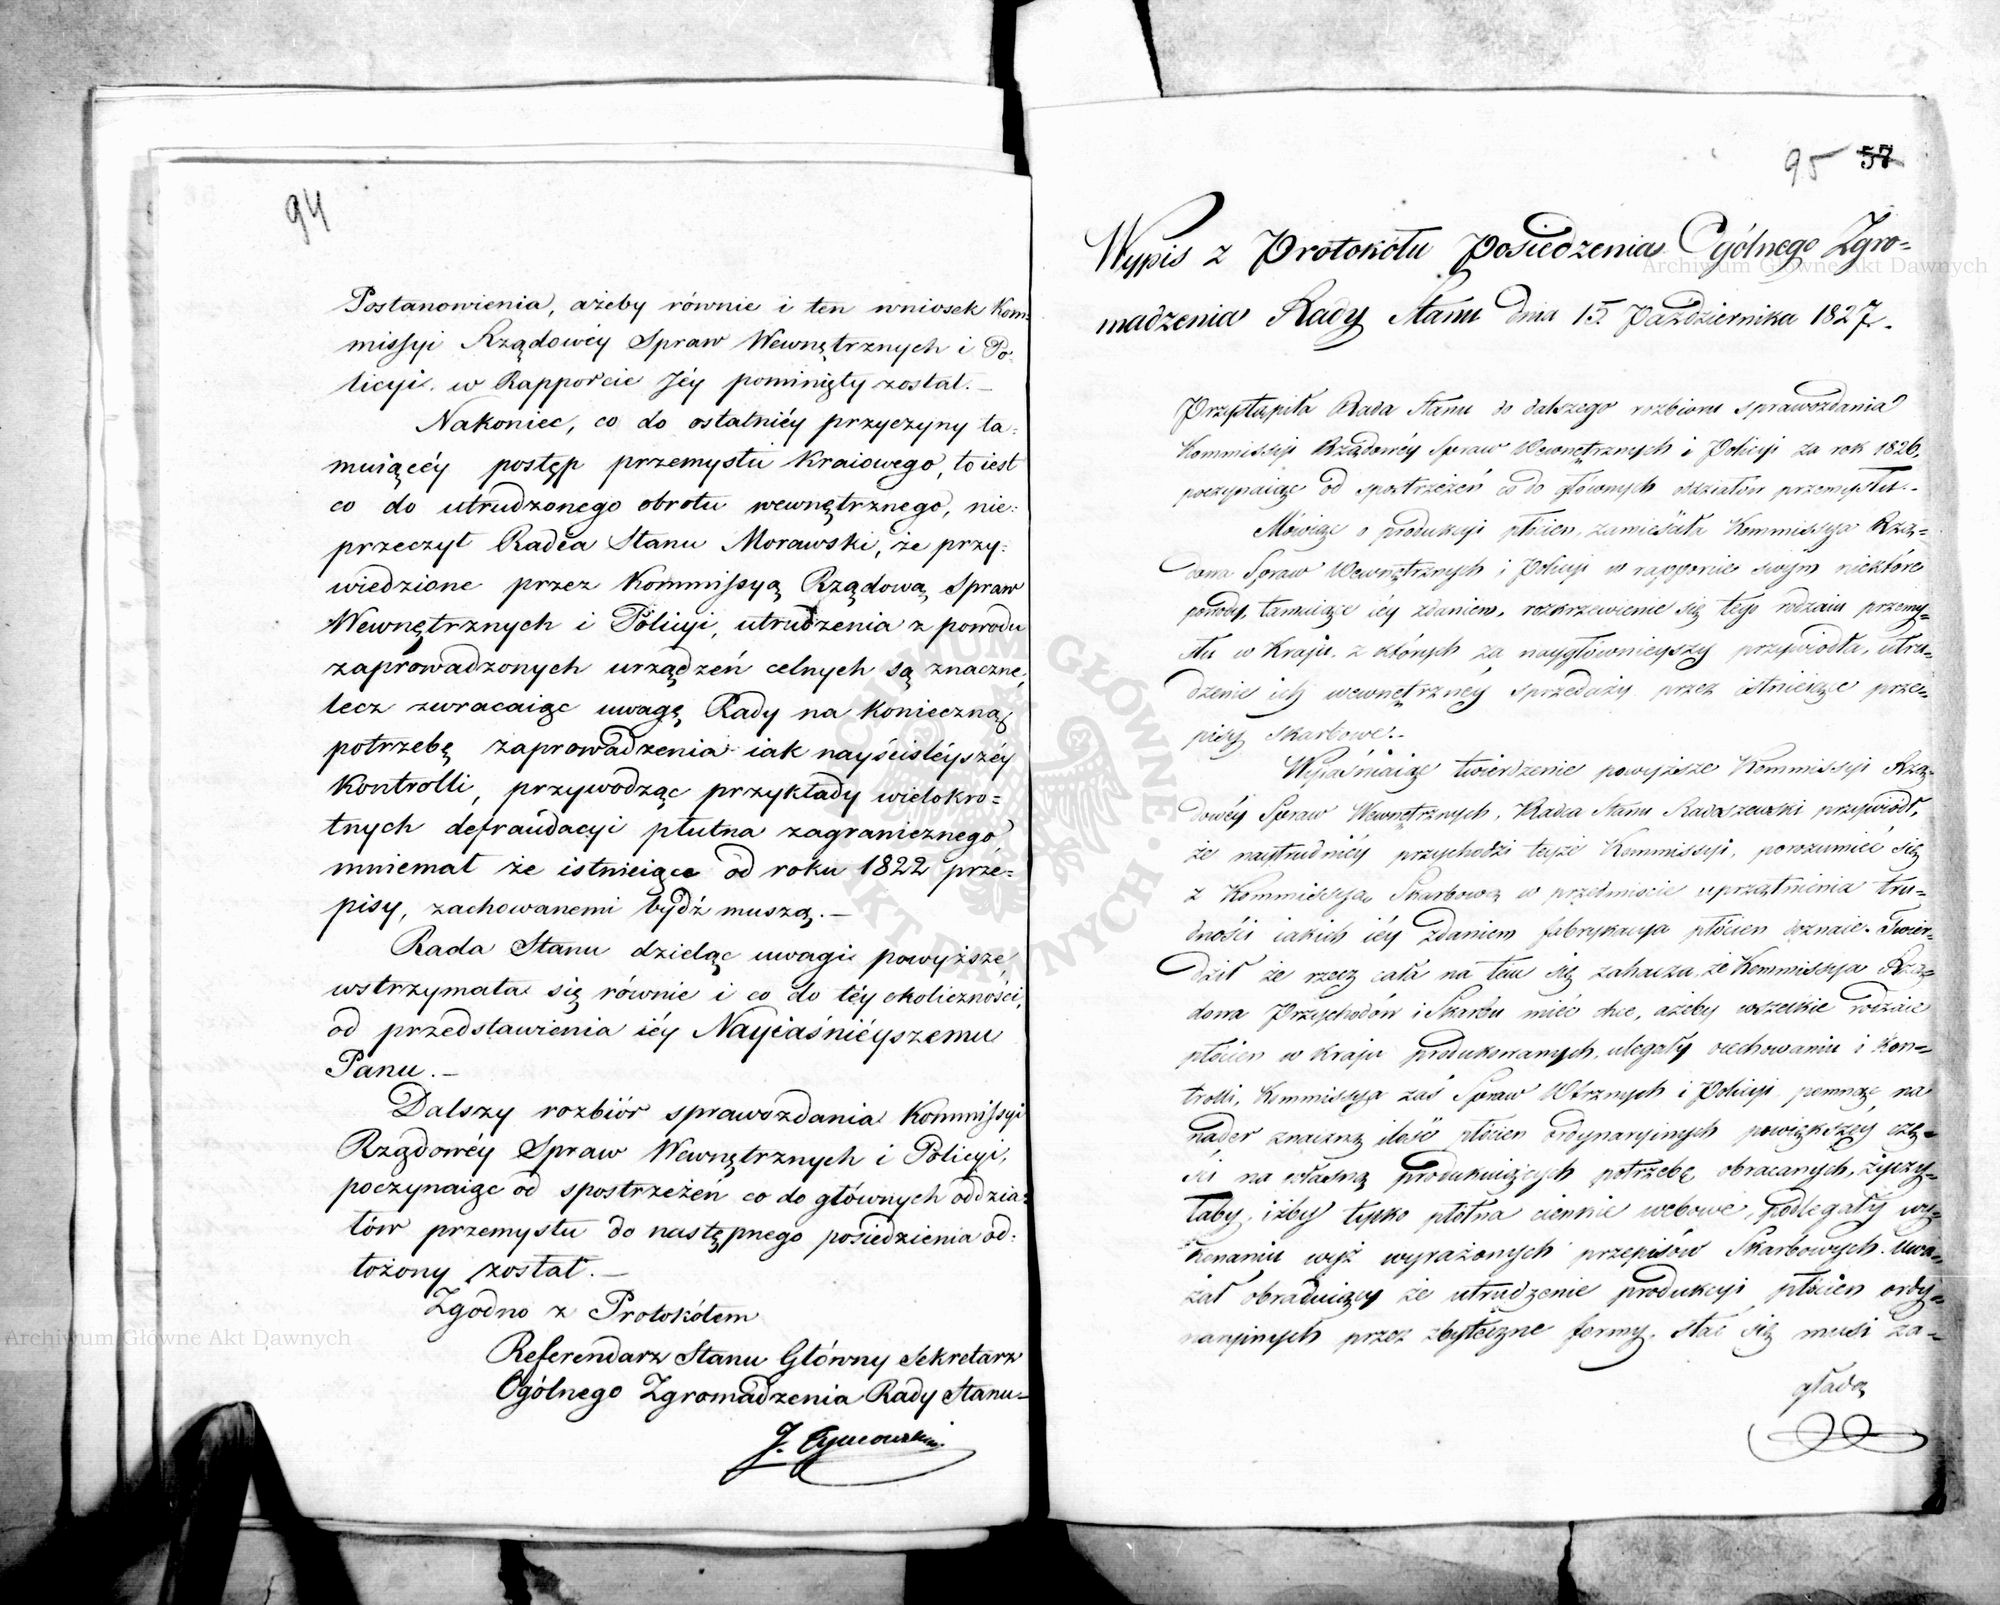 94
Postanowienia, ażeby równie i ten wniosek Kom=
missyi Rządowéy Spraw Wewnętrznych i Po=
licyi w Rapporcie Jéy pominięty został.—
Nakoniec, co do ostatniéy przyczyny ta=
muiącéy postęp przemysłu Kraiowego, to iest
co do utrudzonego obrotu wewnętrznego, nie=
przeczył Radca Stanu Morawski, że przy=
wiedzione przez Kommissyą Rządową Spraw
Wewnętrznych i Policyi, utrudzenia z powodu
zaprowadzonych urządzeń celnych są znaczne,
lecz zwracaiąc uwagę Rady na konieczną
potrzebę zaprowadzenia iak nayściśléyszéy
Kontrolli, przywodząc przykłady wielokro=
tnych defraudacyi płutna zagranicznego,
mniemał że istnieiące od roku 1822 prze=
pisy, zachowanemi bydź muszą.—
Rada Stanu dzieląc uwagi powyższe,
wstrzymała się równie i co do téy okoliczności,
od przedstawienia iéy Nayiaśniéyszemu
Panu.—
Dalszy rozbiór sprawozdania Kommissyi
Rządowéy Spraw Wewnętrznych i Policyi,
poczynaiąc od spostrzeżeń co do głównych oddzia=
łów przemysłu do następnego posiedzienia od=
łożony został.—
Zgodno z Protokółem
Referendarz Stanu Główny Sekretarz
Ogólnego Zgromadzenia Rady Stanu—
95 57
Wypis z Protokółu Posiedzenia Ogólnego Zgro=
madzenia Rady Stanu dnia 15. Października 1827.
Przystąpiła Rada Stanu do dalszego rozbioru sprawozdania
Kommissyi Rządowéy Spraw Wewnętrznych i Policyi za rok 1826,
poczynaiąc od spostrzeżeń co do głównych oddziałów przemysłu.—
Mówiąc o produkcyi płócien, zamieściła Kommissya Rzą=
dowa Spraw Wewnętrznych i Policyi w rapporcie swym niektóre
powody, tamuiące iéy zdaniem, rozkrzewienie się tego rodzaiu przemy=
słu w Kraju, z których za naygłównieyszy przywiodła, utru=
dzenie ich wewnętrznéy sprzedaży przez istnieiące prze=
pisy Skarbowe.—
Wyjaśniaiąc twierdzenie powyższe Kommissyi Rzą=
dowéy Spraw Wewnętrznych, Radca Stanu Radoszewski przywiódł,
że naytrudniéy przychodzi teyże Kommissyi, porozumieć się
z Kommissyą Skarbową w przedmiocie uprzątnienia tru=
dności iakich iéy zdaniem fabrykacya płócien doznaie. Twier=
dził że rzecz cała na tem się zahacza, że Kommissya Rzą=
dowa Przychodów i Skarbu mieć chce, ażeby wszelkie rodzaie
płócien w Kraju produkowanych, ulegały ocechowaniu i Kon=
trolli, Kommissya zaś Spraw Wtrznych i Policyi pomnąc na
nader znaczną ilość płócien ordynaryinych powiększéy czę=
ści na własną produkuiących potrzebę obracanych, życzy=
łaby, iżby tylko płótna cienkie webowe, podlegały wy=
konaniu wyż wyrażonych przepisów Skarbowych. Uwa=
żał obraduiący że utrudzenie produkcyi płócien ordy=
naryinych przez zbyteczne formy, stać się musi za=
gładą
Archiwum Główne Akt Dawnych
Archiwum Główne Akt Dawnych
ARCHIWUM GŁÓWNE AKT DAWNYCH